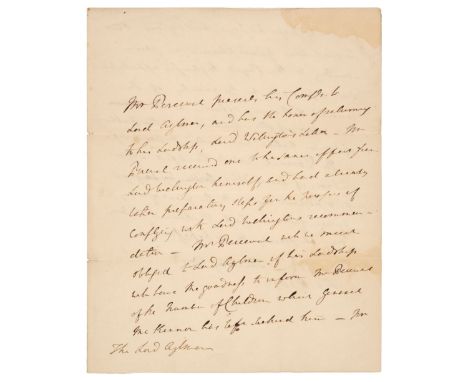 Mr Perceval presents his Compts. to
Lord Aylmer, and has the honor of returning
to his Lordship, Lord Wellington's letter — Mr
Perceval received one to the same effect from
Lord Wellington himself, and had already
taken preparatory steps for the purpose of
complying with Lord Wellington's recommen-
dation — Mr Perceval will be much
obliged to Lord Aylmer if his Lordship
will have the goodness to inform Mr Perceval
of the Number of Children whom General
McKinnon has left behind him — Mr
The Lord Aylmer